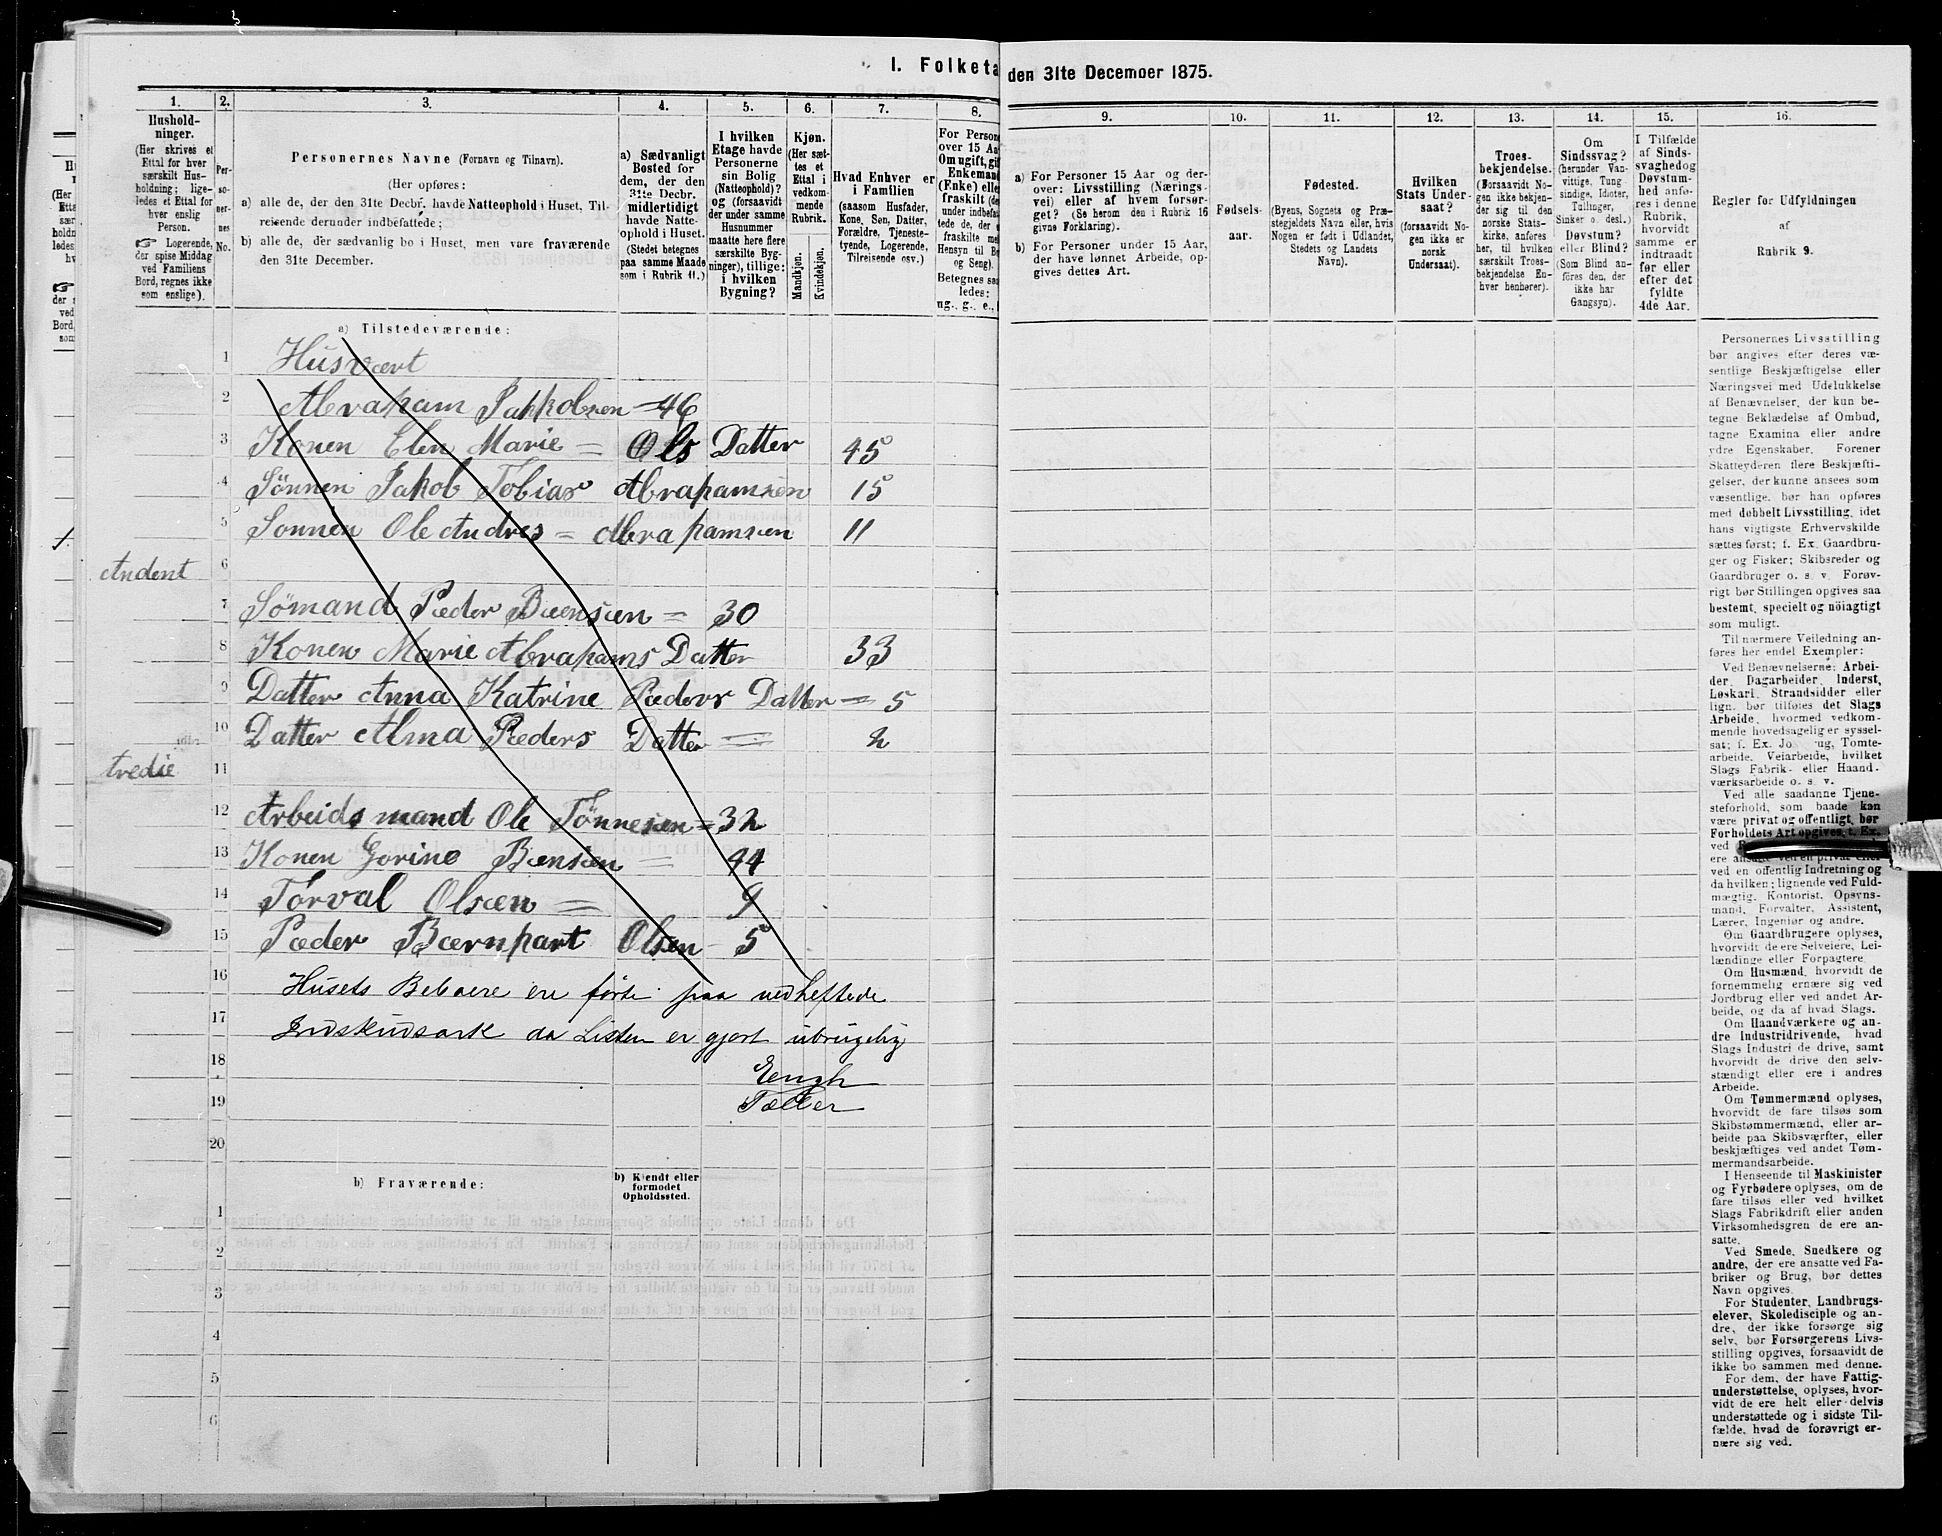 I. Folketa
den 31te December 1875.
1.
Hushold-
ninger.
(Her skrives et
Ettal for hver
særskilt Hus-
holdning; lige-
ledes et Ettal for
hver enslig
Person.
☞ Logerende,
der spise Middag
ved Familiens
Bord, regnes ikke
som enslige).
2.
Per-
so-
ner-
nes
No.
3.
Personernes Navne (Fornavn og Tilnavn).
(Her opføres:
a) alle de, der den 31te Decbr. havde Natteophold i Huset, Til-
reisende derunder indbefattede;
b) alle de, der sædvanlig bo i Huset, men vare fraværende
den 31te December.
4.
a) Sædvanligt
Bosted for
dem, der den
31te Decbr.
midlertidigt
havde Natte-
ophold i Huset.
(Stedet betegnes
paa samme Maade
som i Rubrik 11.)
5.
I hvilken
Etage havde
Personerne
sin Bolig
(Natteophold)?
og (forsaavidt
der under samme
Husnummer
maatte høre flere
særskilte Byg-
ninger), tillige:
i hvilken
Bygning?
6.
Kjøn.
(Her sæt-
tes et
Ettal i
vedkom-
mende
Rubrik.
Mandkjøn.
Kvindekjøn.
7.
Hvad Enhver er
i Familien
(saasom Husfader,
Kone, Søn, Datter,
Forældre, Tjeneste-
tyende, Logerende,
Tilreisende osv.)
8.
For Persone
over 15 Aa
Om ugift, gif
Enkemand
(Enke) elle
fraskilt (de
under indbefa
tede, der
fraskilte me
Hensyn til Bo
og Seng).
Betegnes saa
ledes:
ug., g., e.,
9.
a) For Personer 15 Aar og der-
over: Livsstilling (Nærings-
vei) eller af hvem forsør-
get? (Se herom den i Rubrik 16
givne Forklaring).
b) For Personer under 15 Aar,
der have lønnet Arbeide, op-
gives dettes Art.
10.
Fødsels-
aar.
11.
Fødested.
(Byens, Sognets og Præ-
stegjeldets Navn eller, hvis
Nogen er født i Udlandet,
Stedets og Landets
Navn).
12.
Hvilken
Stats Under-
saat?
(forsaavidt No-
gen ikke er
norsk
Undersaat).
13.
Troes-
bekjendelse.
(Forsaavidt No-
gen ikke bekjen-
der sig til den
norske Stats-
kirke, anføres
her, til hvilken
særskilt Troes-
bekjendelse En-
hver henhører).
14.
Om
Sindssvag?
(herunder Van-
vittige, Tung
sindige, Idioter,
Tullinger,
Sinker o. desl.)
Døvstum?
eller Blind?
(Som Blind an-
føres den, der
ikke har
Gangsyn).
15.
I Tilfælde
af Sinds-
svaghed og
Døvstum-
hed anfø-
res i denne
Rubrik,
hvorvidt
samme er
indtraadt
før eller
efter det
fyldte
4de Aar.
16.
Regler for Udfyldningen
af
Rubrik 9.
a) Tilstedeværende:
1 Husvært
2 Abraham Jakkobsen = 46
3 Konen Elen Marie = Ols Datter 45
4 Sønnen Jakob Tobias Abrahamsen 15
5 Sønnen Ole Andres = Abrahamsen 11
Andent 6
7 Sømand Pæder Bærnsen = 30
8 Konen Marie Abrahams Datter 33
9 Datter Anna Katrine Pæders Datter = 5
10 Datter Alma Pæders Datter = 2
tredie 11
12 Arbeidsmand Ole Tønnesen = 32
13 Konen Gorine Bænsen = 44
14 Torval Olsæn = 9
15 Pæder Bærnhart Olsen - 5
16 Husets Beboere ere førte paa vedheftede
17 Indskudsark da Listen er gjort ubrugelig
18 Eengh
19 Tæller
20
b) Fraværende:
b) Kjendt eller
formodet
Opholdssted.
1
2
3
4
5
6
Personernes Livsstilling
bør angives efter deres væ-
sentlige Beskjæftigelse eller
Næringsvei med Udelukkelse
af Benævnelser, der kun be-
tegne Beklædelse af Ombud,
tagne Examina eller andre
ydre Egenskaber. Forener
Skatteyderen flere Beskjæfti-
gelser, der kunne ansees som
væsentlige, bør han opføres
med dobbelt Livsstilling, idet
hans vigtigste Erhvervskilde
sættes først; f. Ex. Gaardbru-
ger og Fisker; Skibsreder og
Gaardbruger o. s. v. Forøv-
rigt bør Stillingen opgives saa
bestemt, specielt og nöiagtigt
som muligt.
Til nærmere Veiledning an-
føres her endel Exempler:
Ved Benævnelserne: Arbei-
der, Dagarbeider, Inderst,
Løskarl, Strandsidder eller
lign. bør tilføies det Slags
Arbeide, hvormed vedkom-
mende hovedsagelig er syssel-
sat; f. Ex. Jo rug, Tomte-
arbeide, Veiarbeide, hvilket
Slags Fabrik- eller Haand-
værksarbeide o. s. v.
Ved alle saadanne Tjene-
steforhold, som baade kan
være privat og offentligt, bør
Forholdets Art opgives, t. Ex.
ved
ere ansatte ved en privat eller
ved en offentlig Indretning og
da hvilken; lignende ved Fuld-
mægtig, Kontorist, Opsyns-
mand, Forvalter, Assistent,
Lærer, Ingeniør og andre.
Om Gaardbrugere oplyses,
hvorvidt de ere Selveiere, Lei-
lændinge eller Forpagtere.
Om Husmænd, hvorvidt de
fornemmelig ernære sig ved
Jordbrug eller ved andet Ar-
beide, og da af hvad Slags.
Om Haandværkere og an-
dre Industridrivende, hvad
Slags Industri de drive, samt
hvorvidt de drive den selv-
stændigt eller ere i andres
Arbeide.
Om Tømmermænd oplyses,
hvorvidt de fare tilsøs som
Skibstømmermænd, eller ar-
beide paa Skibsværfter, eller
beskjæftiges ved andet Tøm-
mermandsarbeide.
I Henseende til Maskinister
og Fyrbødere oplyses, om de
fare tilsøs eller ved hvilket
Slags Fabrikdrift eller anden
Virksomhedsgren de ere an-
satte.
Ved Smede, Snedkere og
andre, der ere ansatte ved Fa-
briker og Brug, bør dettes
Navn opgives.
For Studenter, Landbrugs-
elever, Skoledisciple og an-
dre, der ikke forsørge sig
selv, bør Forsørgerens Livs-
stilling opgives, forsaavidt de
ikke bo sammen med denne.
For dem, der have Fattig-
understøttelse, oplyses, hvor-
vidt de ere helt eller delvis
understøttede og i sidste Til-
fælde, hvad de forøvrigt er-
nære sig ved.